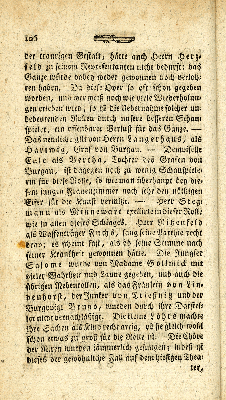 106
der traurigen Gestalt, hätte auch Herrn Herz-
feld zu seinem Repräsentanten nicht bedurft; das
Ganze würde dabey weder gewonnen noch verloh-
ren haben. Da diese Oper so oft schon gegeben
worden, und wer weiß noch wie viele Wiederholun-
gen erleben wird, so ist die Uebernahme solcher un-
bedeutenden Rollen durch unsere bessern Schau-
spieler, ein offenbarer Verlust für das Ganze. —
Das nemliche gilt von Herrn Langerhans, als
Hartwig, Graf von Burgau. — Demoiselle
Eule als Bertha, Tochter des Grafen von
Burgau, ist dagegen noch zu wenig Schauspiele-
rin für diese Rolle, so wie man überhaupt den die-
sem jungen Frauenzimmer noch sehr den nöthigen
Eifer für die Kunst vermißt. — Herr Steg-
mann als Minnewart excellirte in der Rolle
wie in allen dieses Schlages. Herr Rizenfeld
als Waffenträger Fuchs, sang seine Partie recht
brav; es scheint fast, als ob seine Stimme nach
seiner Krankheit gewonnen habe. Die Jungfer
Salome wurde von Madame Gollmick mit
vieler Wahrheit und Laune gegeben, und auch die
übrigen Nebenrollen, als das Fräulein von Lin-
denhorst, der Junker von Tiefsinn und der
Burgvoigt Bruno, wurden durch ihre Darstel-
ler nicht vernachläßigt. Die kleine Löhrs machte
ihre Sachen als Kind recht artig, ob sie gleich wohl
schon etwas zu groß für die Rolle ist. Die Chöre
der Nixen wurden jämmerlich gesungen; indeß ist
dieses der gewöhnliche Fall auf dem hiesigen Thea-
ter,